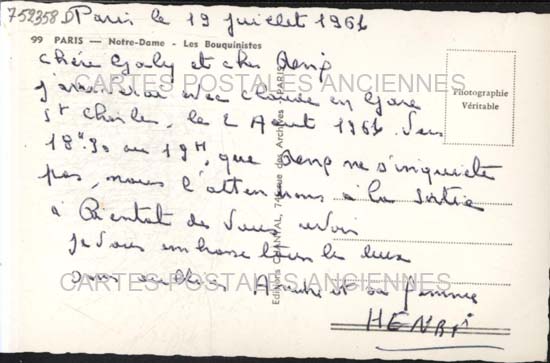 752358 D
Paris le 19 juillet 1961
99 PARIS — Notre-Dame - Les Bouquinistes
Chère Gaby et cher
CARTES POSTALES ANCIENNES
Photographie
Véritable
j'arriverai avec Claude en Gare
St Charles, le 2 Aout 1961. Vers
18H30 ou 19H, que ne s'inquiète
pas, nous l'attendrons à la sortie
à Bientot de vous revoir
je vous embrasse tous les deux
CARTES POSTALES ANCIENNES
sans oublier André et sa femme
HENRI
Editions CHANTAL, 74, rue des Archives - PARIS